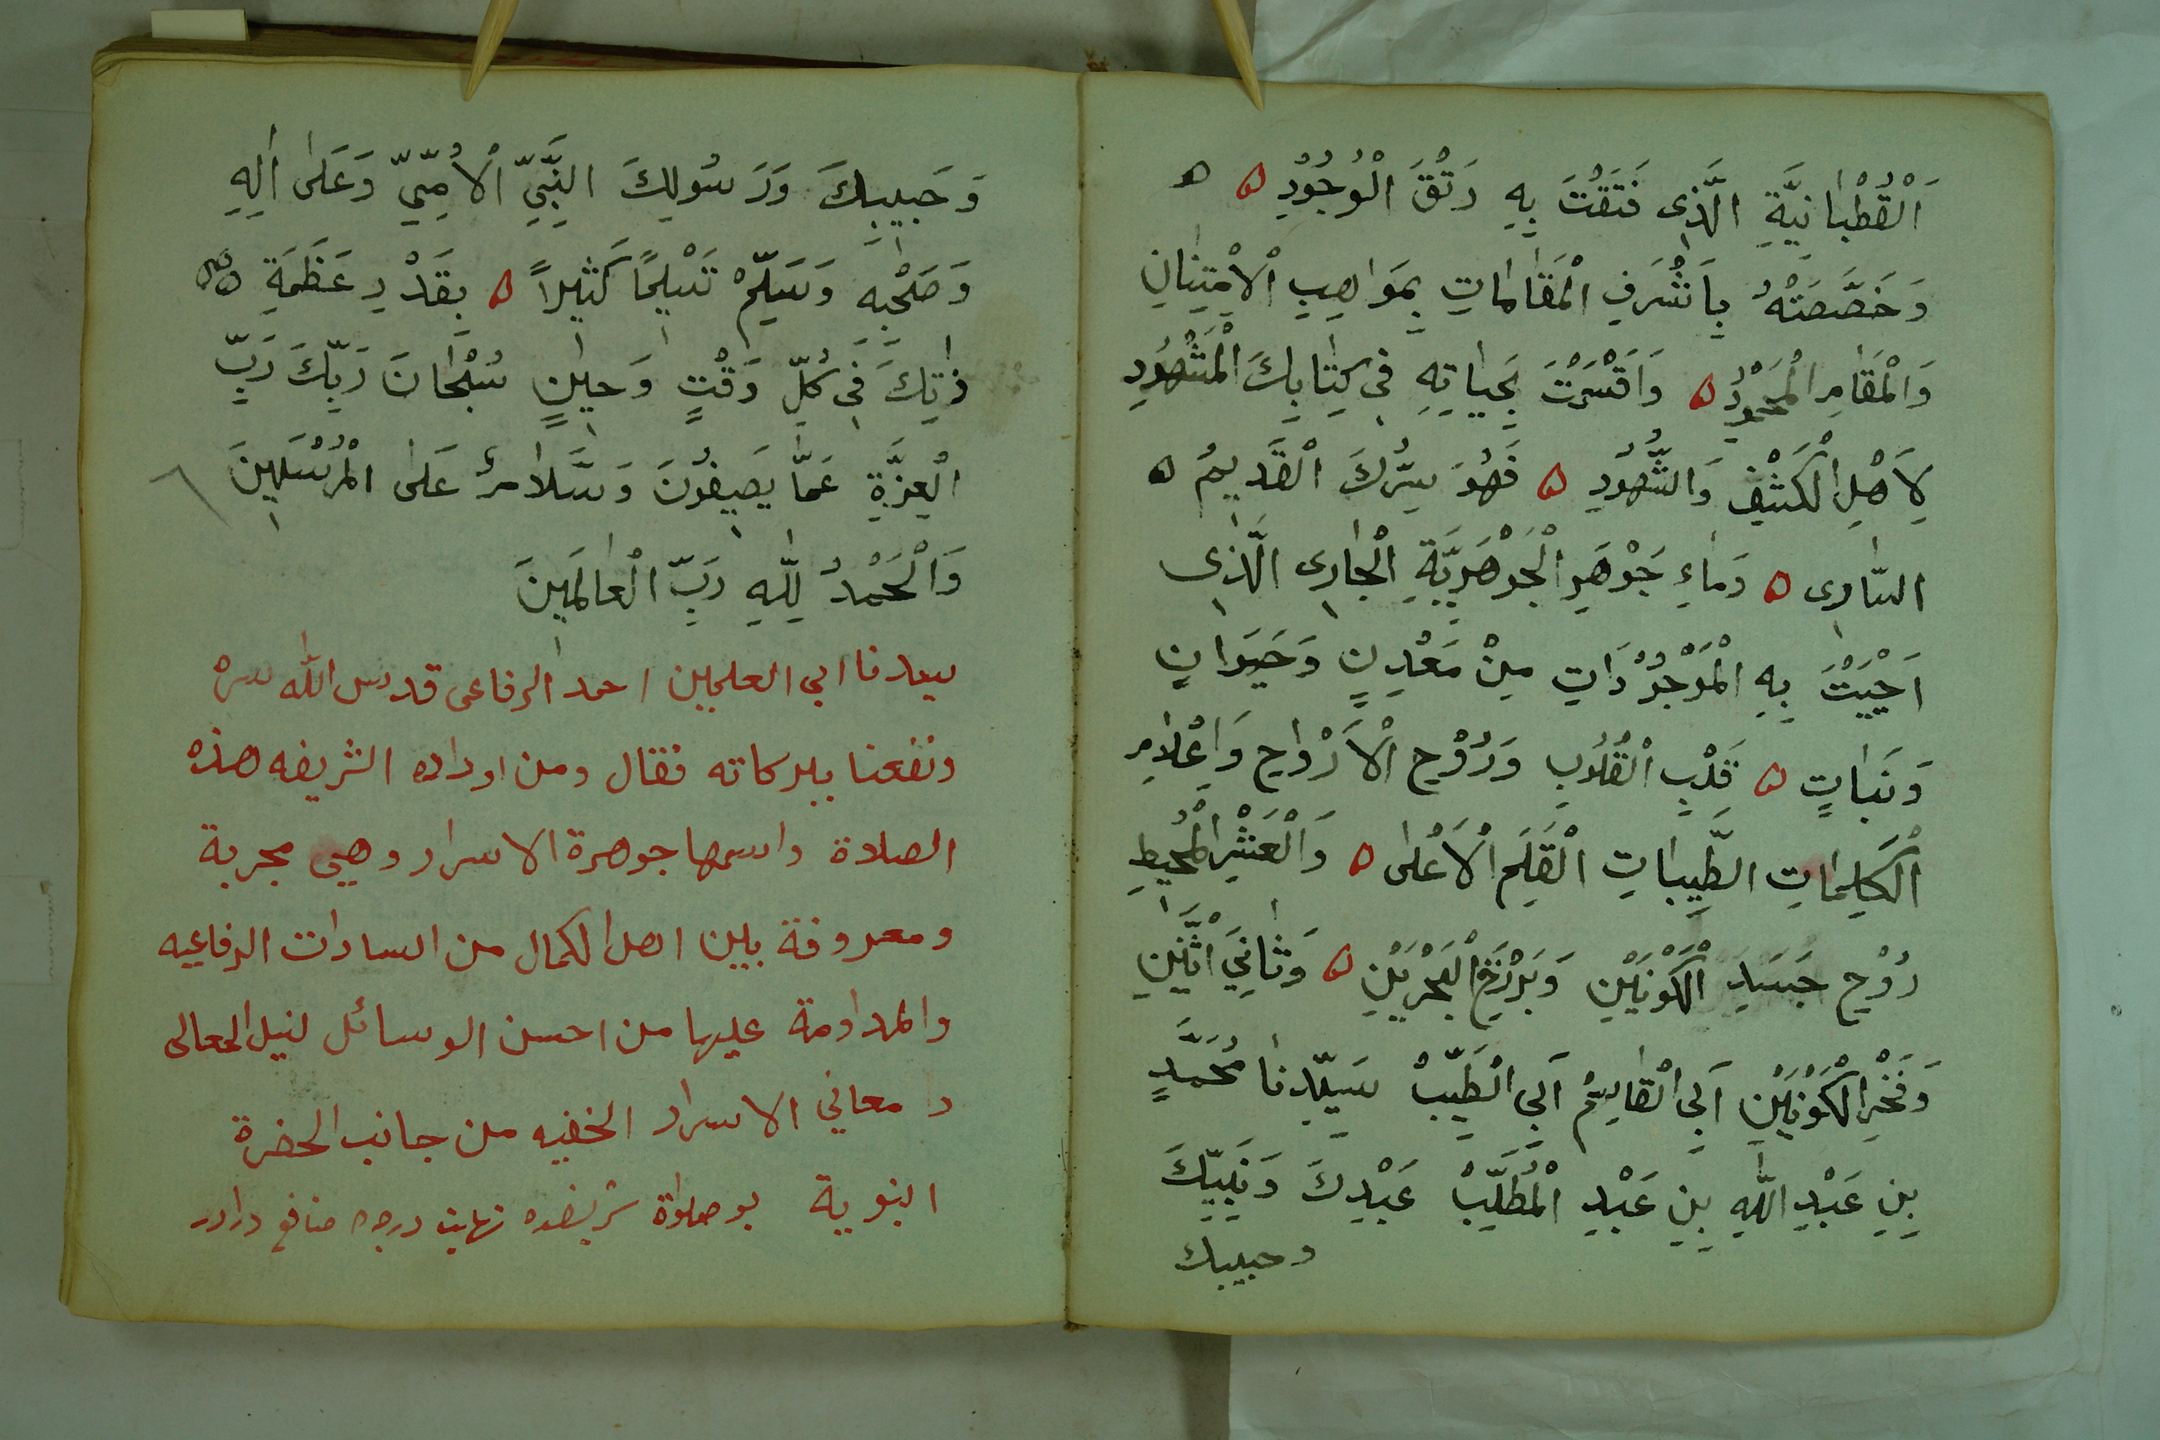 اَلْقُطْبَانِيَّةِ الَّذِى فَتَقْتَ بِهِ رَتْقَ الْوُجُوْدِ ه ه
وَخَصَّصَتْهُ بِاَشْرَفِ الْمَقَامَاتِ بِمَوَاهِبِ الْاِمْتِنَانِ
وَالْمَقَامِ الْمَحْمُوْدِ ه وَاَقْسَمْتَ بِحَيَاتِهِ فِى كِتَابِكَ الْمَشْهُوْدِ
لِاَهْلِ الْكَشْفِ وَالشُّهُوْدِ ه فَهُوَ سِرُّكَ الْقَدِيمُ ه
السَّارِى ه وَمَاءِ جَوْهَرِ الْجَوْهَرِيَّةِ الْجَارِى الَّذِى
اَحْيَيْتَ بِهِ الْمَوْجُوْدَاتِ مِنْ مَعْدِنٍ وَحَيَوَانٍ
وَنَبَاتٍ ه قَلْبِ الْقُلُوْبِ وَرُوْحِ الْاَرْوَاحِ وَاِعْلَامِ
الْكَلِمَاتِ الطَّيِّبَاتِ الْقَلَمِ الْاَعْلٰى ه وَالْعَرْشِ الْمُحِيْطِ
رُوْحِ جَسَدِ الْكَوْنَيْنِ وَبَرْزَخِ الْبَحْرَيْنِ ه وَثَانِىَ اثْنَيْنِ
وَفَخْرِ الْكَوْنَيْنِ اَبِى الْقَاسِمْ اَبِى الطَّيِّبْ سَيِّدِنَا مُحَمَّدٍ
بِنِ عَبْدِ اللّٰهِ بِنِ عَبْدِ الْمُطَّلِبْ عَبْدِكَ وَنَبِيِّكَ
وحبيبك
وَحَبِيبِكَ وَرَسُولِكَ النَّبِىِّ الْاُمِّىِّ وَعَلٰى اٰلِهِ
وَصَحْبِهِ وَسَلِّمْ تَسْلِيمًا كَثِيرًا ه بِقَدْرِ عَظَمَةِ
ذَاتِكَ فِى كُلِّ وَقْتٍ وَحِينٍ سُبْحَانَ رَبِّكَ رَبِّ
الْعِزَّةِ عَمَّا يَصِفُوْنَ وَسَلَامٌ عَلَى الْمُرْسَلِينَ
وَالْحَمْدُ لِلّٰهِ رَبِّ الْعَالَمِينَ
سيدنا ابى العلمين احمد الرفاعى قدس اللّٰه سره
ونفعنا ببركاته فقال ومن اوراده الشريفه هذه
الصلاة واسمها جوهرة الاسرار وهى مجربة
ومعروفة بين اهل الكمال من السادات الرفاعيه
والمداومة عليها من احسن الوسائل لنيل المعالى
و معانى الاسرار الخفيه من جانب الحضرة
النبوية بو صلوٰة شريفه‌ده نهايت درجه منافع واردر